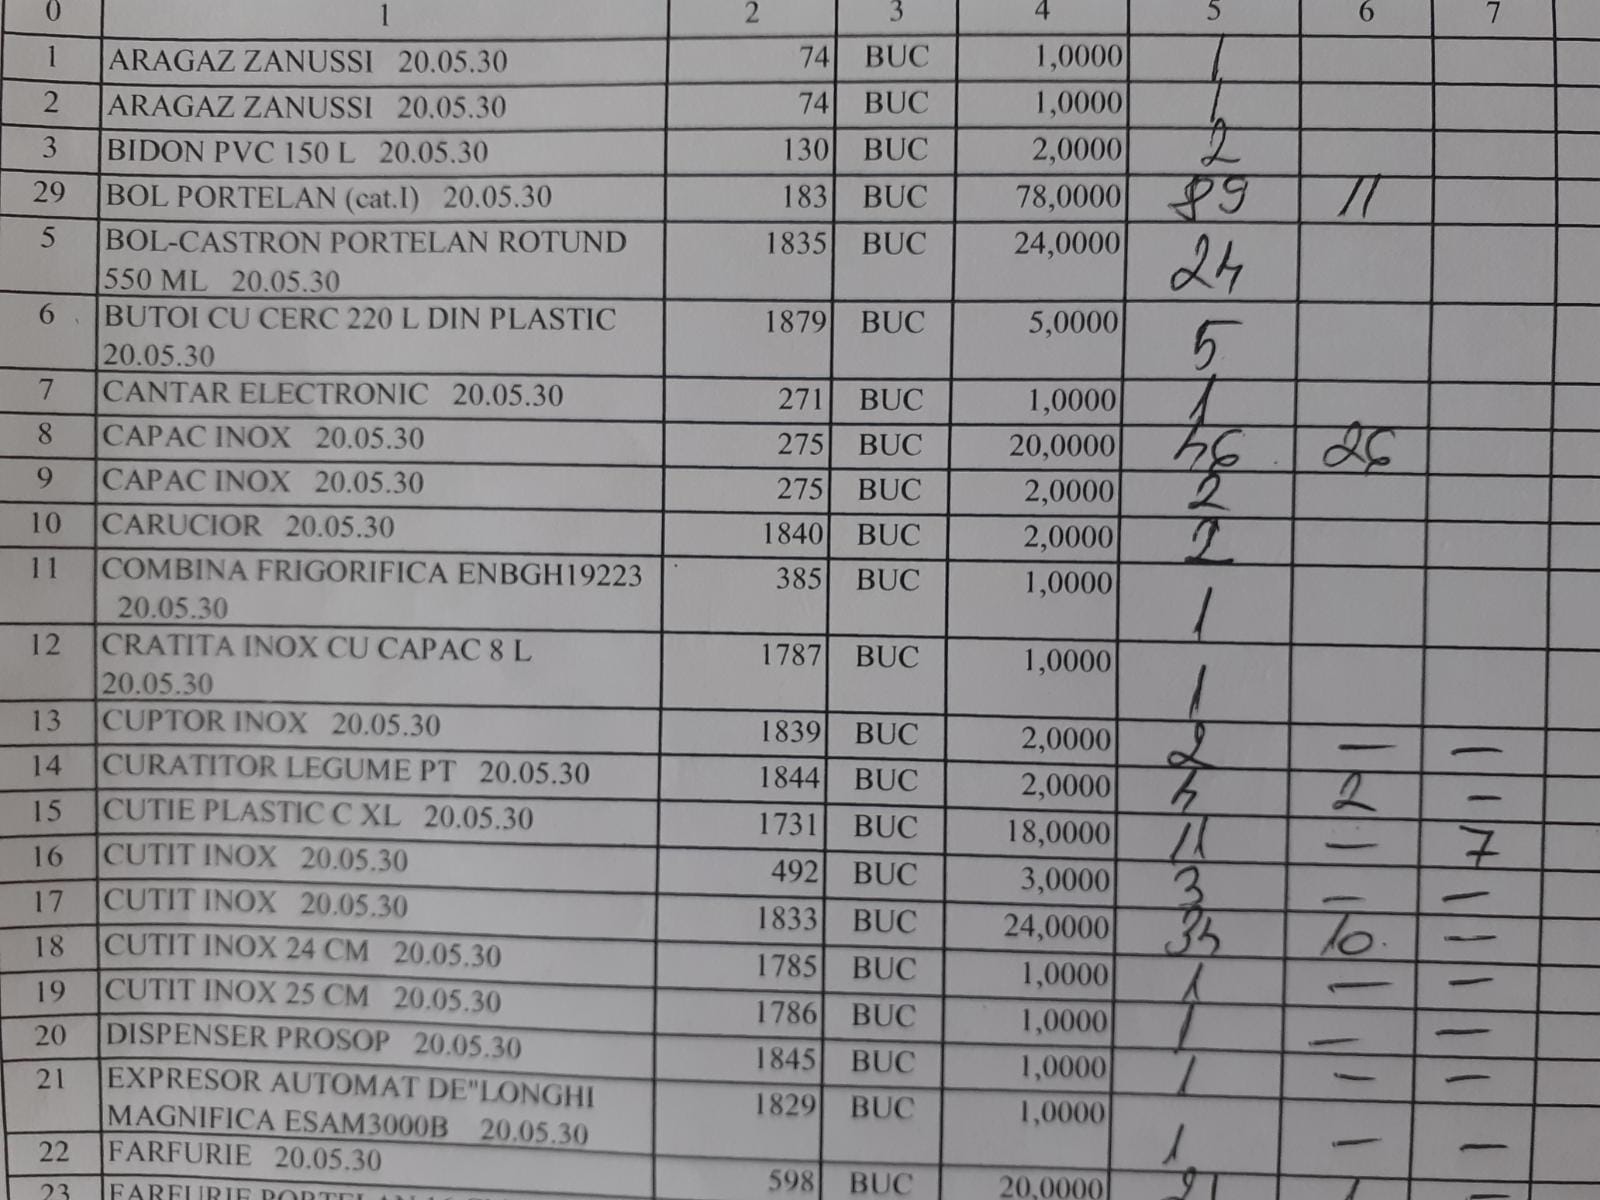 0 1 2 3 4 5 6 7
1 ARAGAZ ZANUSSI 20.05.30 74 BUC 1,0000 1
2 ARAGAZ ZANUSSI 20.05.30 74 BUC 1,0000 1
3 BIDON PVC 150 L 20.05.30 130 BUC 2,0000 2
29 BOL PORTELAN (cat.I) 20.05.30 183 BUC 78,0000 89 11
5 BOL-CASTRON PORTELAN ROTUND 1835 BUC 24,0000 24
550 ML 20.05.30
6 BUTOI CU CERC 220 L DIN PLASTIC 1879 BUC 5,0000 5
20.05.30
7 CANTAR ELECTRONIC 20.05.30 271 BUC 1,0000 1
8 CAPAC INOX 20.05.30 275 BUC 20,0000 46 26
9 CAPAC INOX 20.05.30 275 BUC 2,0000 2
10 CARUCIOR 20.05.30 1840 BUC 2,0000 2
11 COMBINA FRIGORIFICA ENBGH19223 385 BUC 1,0000 1
20.05.30
12 CRATITA INOX CU CAPAC 8 L 1787 BUC 1,0000 1
20.05.30
13 CUPTOR INOX 20.05.30 1839 BUC 2,0000 2 — —
14 CURATITOR LEGUME PT 20.05.30 1844 BUC 2,0000 4 2 —
15 CUTIE PLASTIC C XL 20.05.30 1731 BUC 18,0000 11 — 7
16 CUTIT INOX 20.05.30 492 BUC 3,0000 3 — —
17 CUTIT INOX 20.05.30 1833 BUC 24,0000 34 10 —
18 CUTIT INOX 24 CM 20.05.30 1785 BUC 1,0000 1 — —
19 CUTIT INOX 25 CM 20.05.30 1786 BUC 1,0000 1 — —
20 DISPENSER PROSOP 20.05.30 1845 BUC 1,0000 1 — —
21 EXPRESOR AUTOMAT DE"LONGHI 1829 BUC 1,0000 1 — —
MAGNIFICA ESAM3000B 20.05.30
22 FARFURIE 20.05.30 598 BUC 20,0000 21 1 —
23 FARFURIE PORTELAN